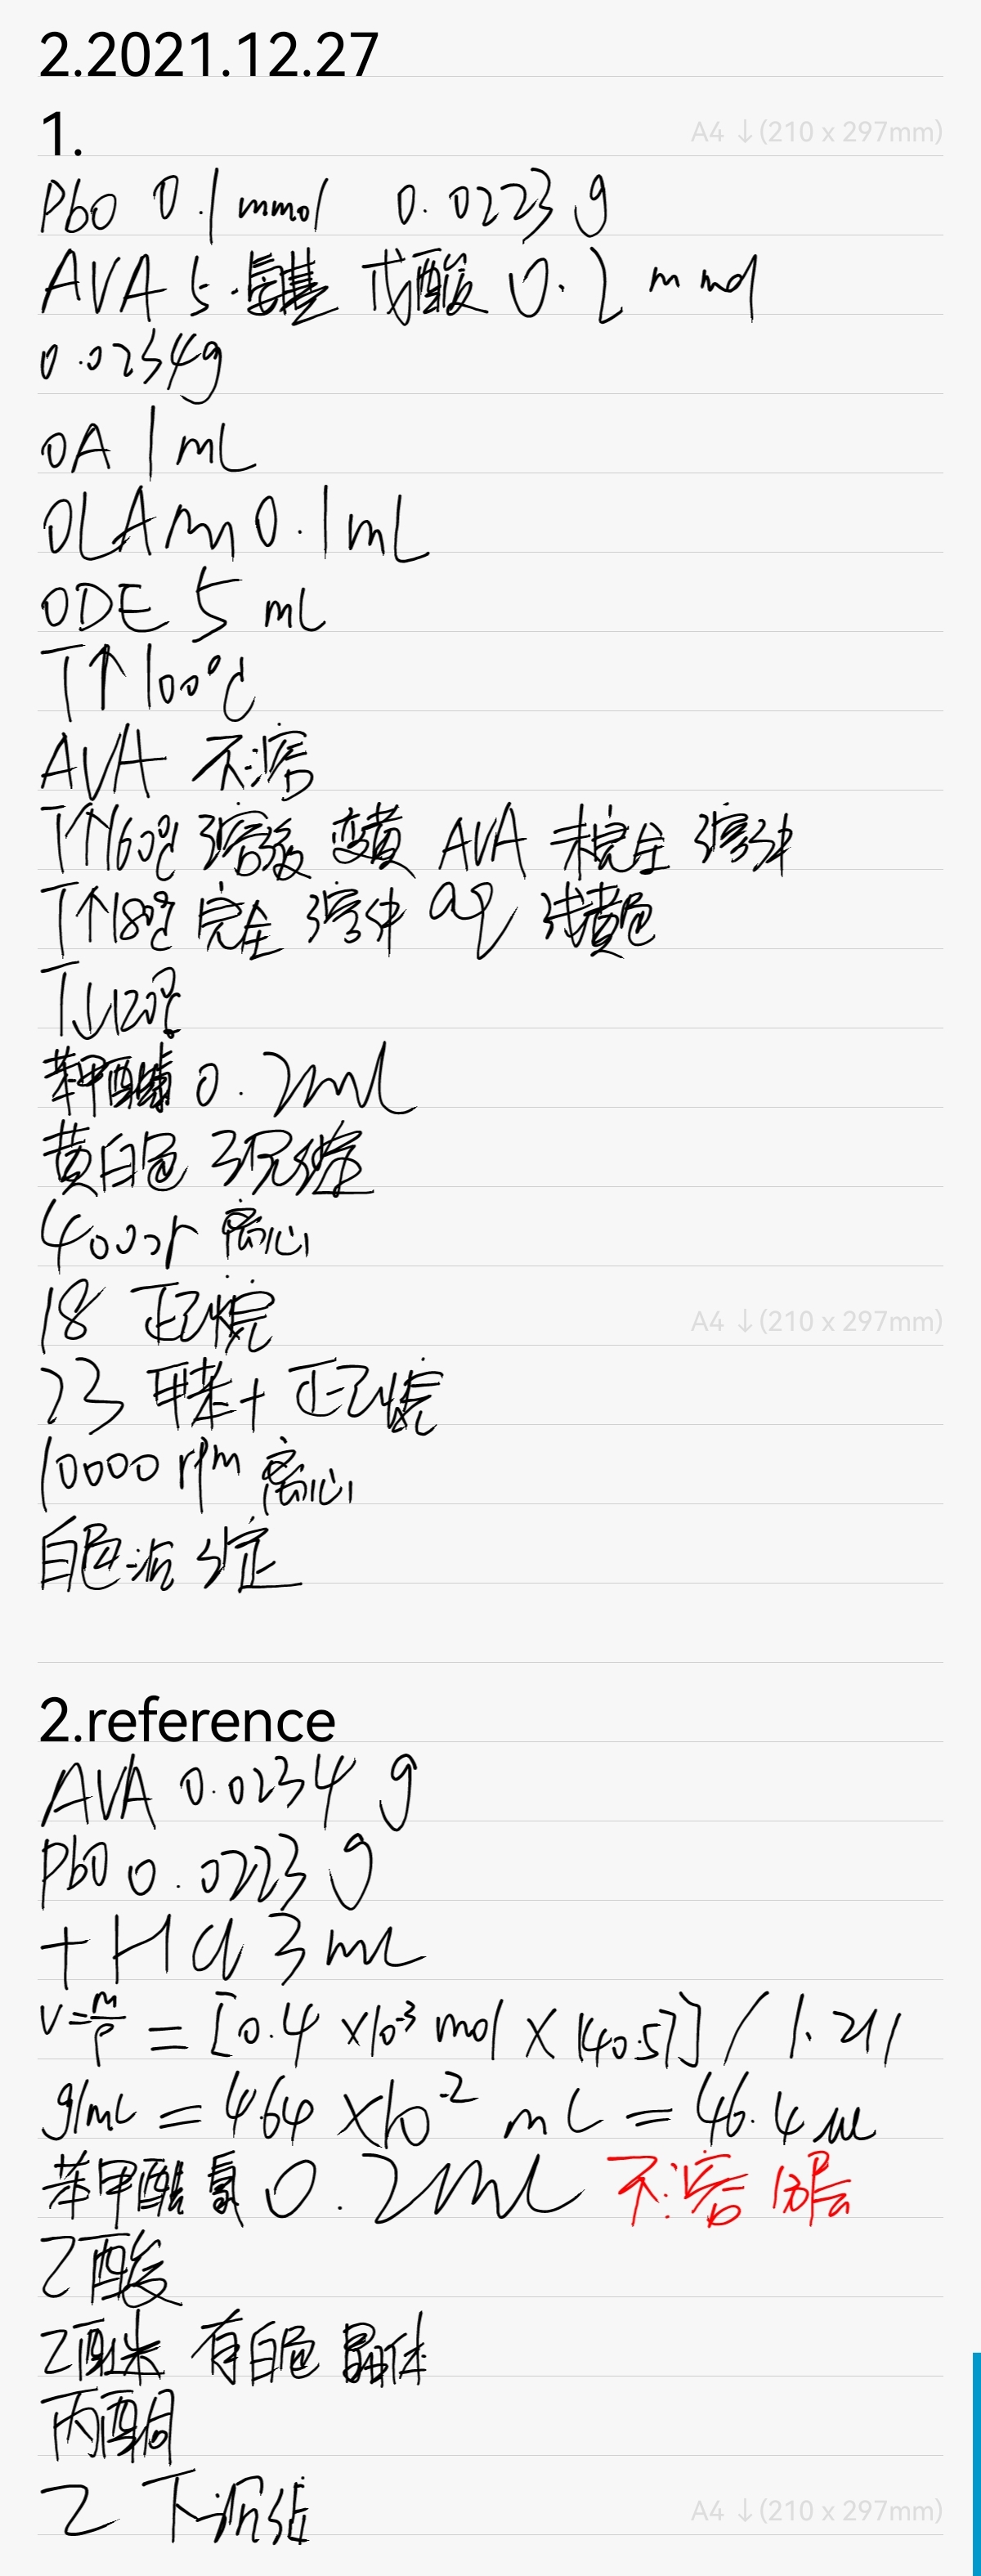 2.2021.12.27
1.
A4 ↓(210 x 297mm)
PbO 0.1 mmol 0.0223 g
AVA 5.氨基 戊酸 0.2 mmol
0.0234g
OA 1 mL
OLAm 0.1mL
ODE 5 mL
T↑100℃
AVA 不溶
T↑160℃ 溶液 变黄 AVA 未完全 溶解
T↑180℃ 完全 溶解 aq 浅黄色
T↓120℃
苯甲酰氯 0.2ml
黄白色 沉淀
4000r 离心
18 正己烷
23 甲苯+ 正己烷
A4 ↓(210 x 297mm)
10000 rpm 离心
白色沉淀
2.reference
AVA 0.0234 g
PbO 0.0223 g
+HCl 3mL
V=m/ρ = [0.4 ×10-3 mol × 140.57] / 1.211
g/mL = 4.64 ×10-2 mL = 46.4 uL
苯甲酰氯 0.2mL 不溶 分层
乙酸
乙醚 有白色 晶体
丙酮
乙 下沉
A4 ↓(210 x 297mm)